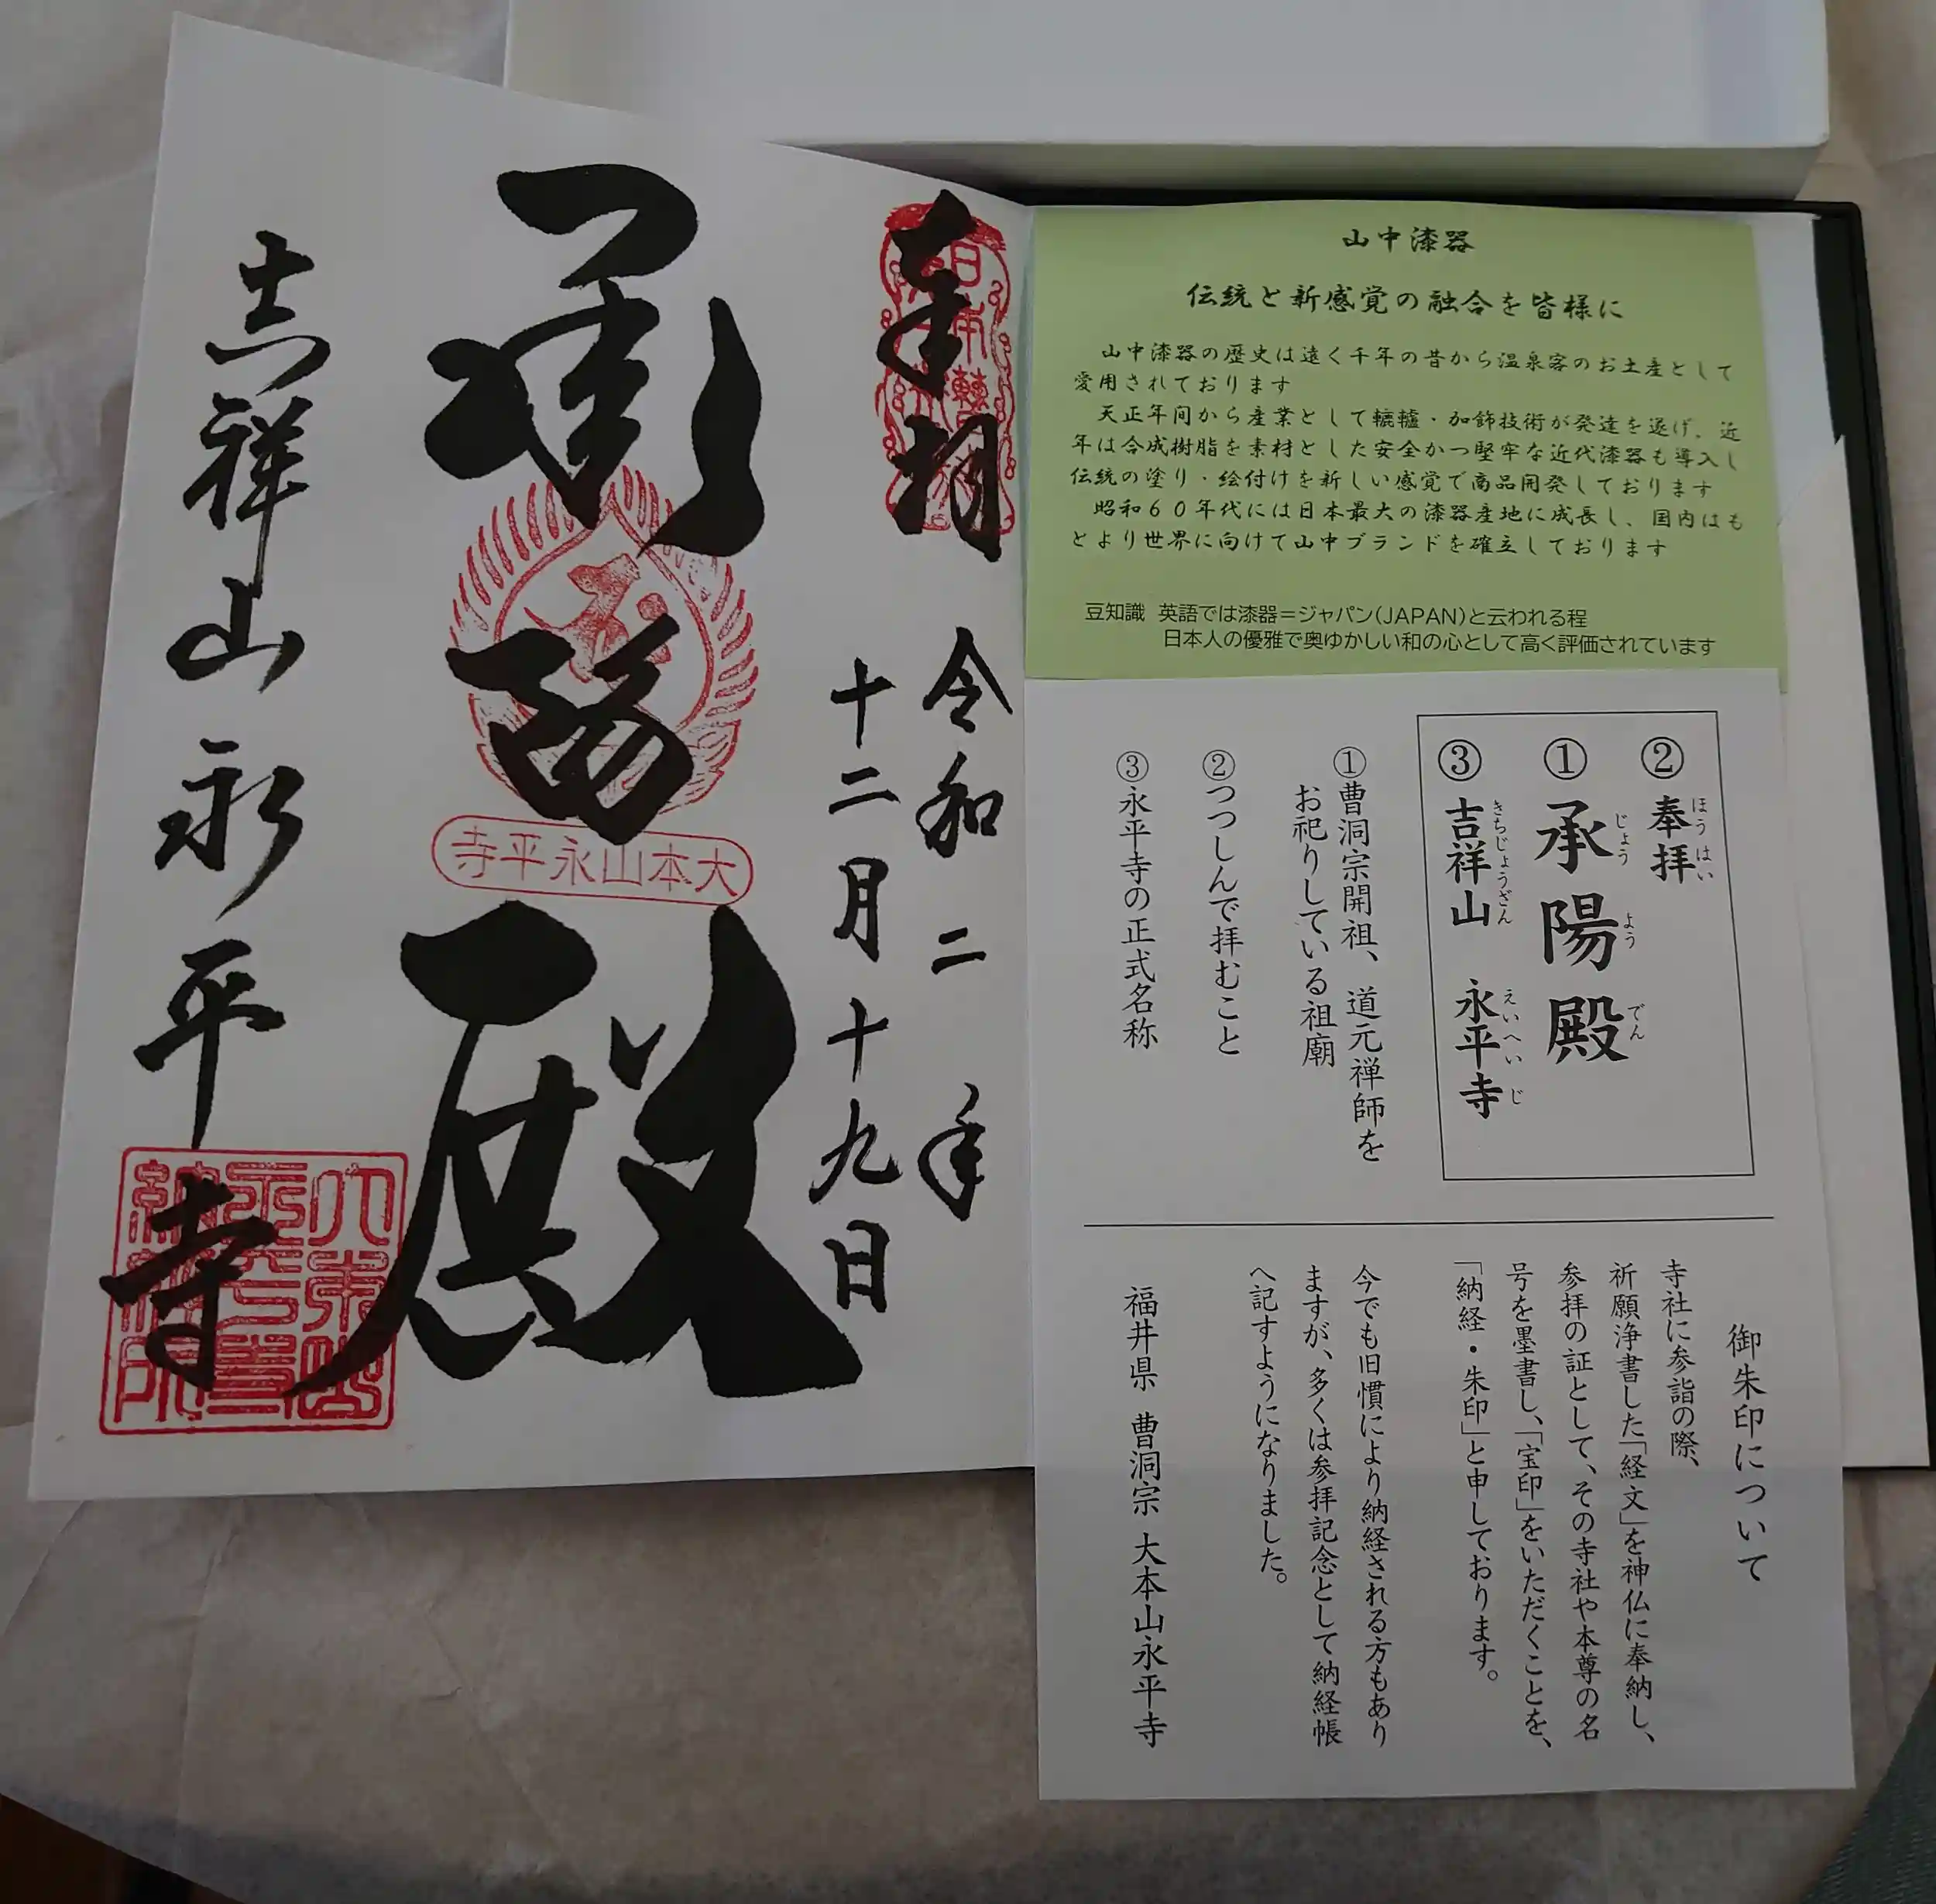 奉拝
令和二年
十二月二十九日
承陽殿
大本山永平寺
吉祥山永平寺
山中漆器
伝統と新感覚の融合を皆様に
山中漆器の歴史は遠く千年の昔から温泉客のお土産として
愛用されております
天正年间から産業として轆轤・加飾技術が発達を遂げ、近
年は合成樹脂を素材とした安全かつ堅牢な近代漆器も導入し
伝統の塗り・絵付けを新しい感覚で商品開発しております
昭和60年代には日本最大の漆器産地に成長し、国内はも
とより世界に向けて山中ブランドを確立しております
豆知識 英語では漆器=ジャパン(JAPAN)と云われる程
日本人の優雅で奥ゆかしい和の心として高く評価されています
②奉拝
ほうはい
①承陽殿
じょうようでん
③吉祥山 永平寺
きちじょうざん えいへいじ
①曹洞宗開祖、道元禅師を
お祀りしている祖廟
②つつしんで拝むこと
③永平寺の正式名称
御朱印について
寺社に参詣の際、
祈願浄書した「経文」を神仏に奉納し、
参拝の証として、その寺社や本尊の名
号を墨書し、「宝印」をいただくことを、
「納経・朱印」と申しております。
今でも旧慣により納経される方もあり
ますが、多くは参拝記念として納経帳
へ記すようになりました。
福井県 曹洞宗 大本山永平寺